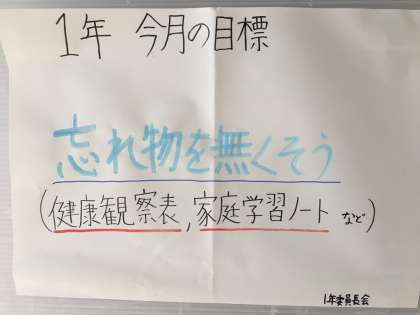 1年 今月の目標
忘れ物を無くそう
(健康観察表,家庭学習ノートなど)
1年委員長会